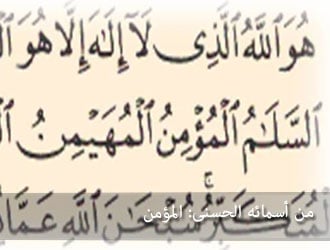 هُوَ ٱللَّهُ ٱلَّذِى لَآ إِلَٰهَ إِلَّا هُوَ
ٱلسَّلَٰمُ ٱلْمُؤْمِنُ ٱلْمُهَيْمِنُ
سُبْحَٰنَ ٱللَّهِ عَمَّا
من أسمائه الحسنى: المؤمن